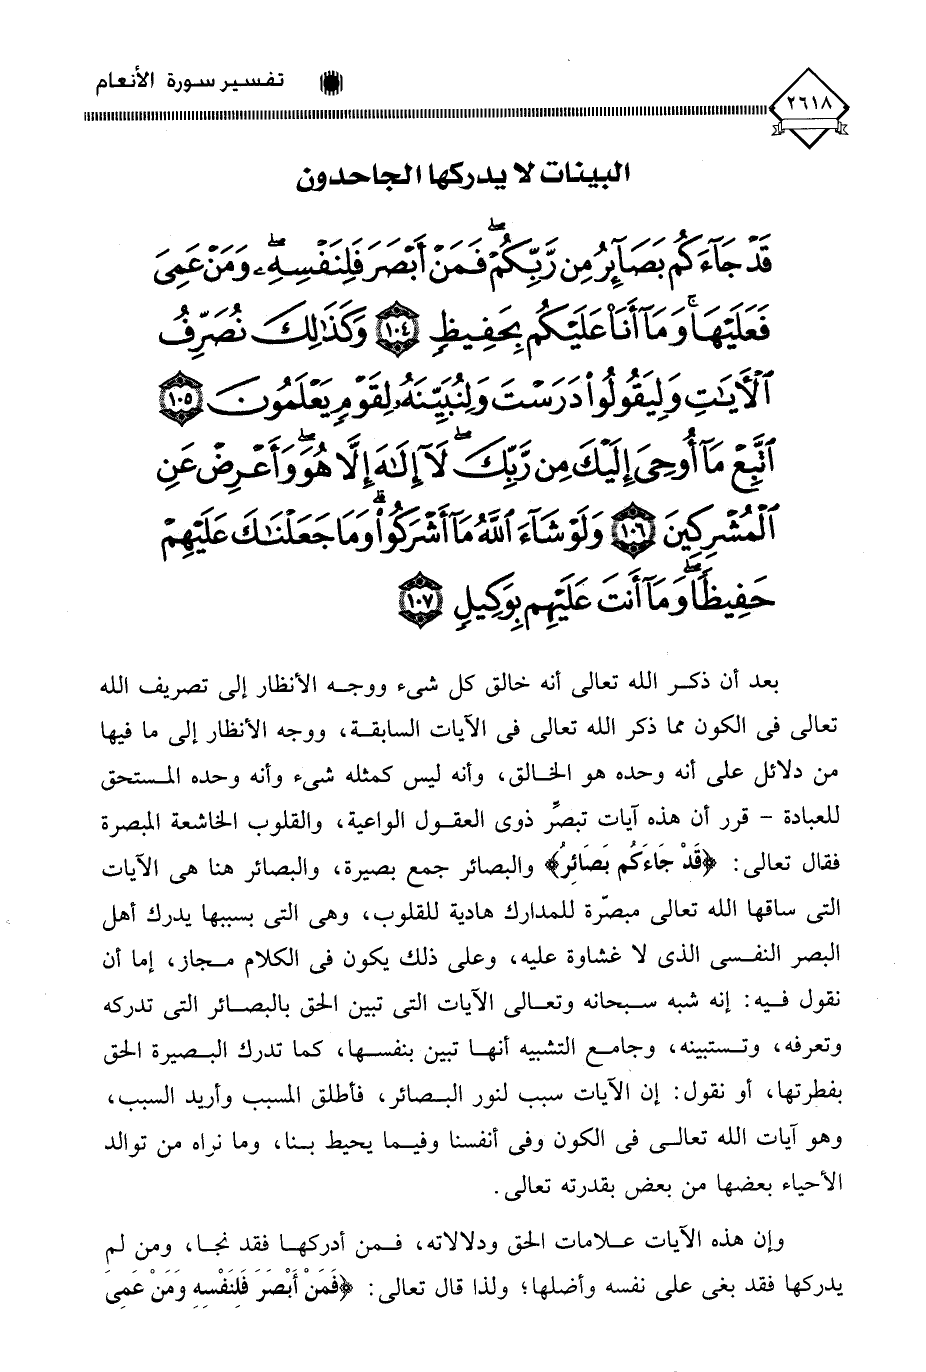 تفسير سورة الأنعام
٢٦١٨
البينات لا يدركها الجاحدون
قَدْ جَآءَكُم بَصَآئِرُ مِن رَّبِّكُمْ ۖ فَمَنْ أَبْصَرَ فَلِنَفْسِهِۦ ۖ وَمَنْ عَمِىَ
فَعَلَيْهَا ۚ وَمَآ أَنَا۠ عَلَيْكُم بِحَفِيظٍ ١٠٤ وَكَذَٰلِكَ نُصَرِّفُ
ٱلْـَٔايَٰتِ وَلِيَقُولُوا۟ دَرَسْتَ وَلِنُبَيِّنَهُۥ لِقَوْمٍ يَعْلَمُونَ ١٠٥
ٱتَّبِعْ مَآ أُوحِىَ إِلَيْكَ مِن رَّبِّكَ ۖ لَآ إِلَٰهَ إِلَّا هُوَ ۖ وَأَعْرِضْ عَنِ
ٱلْمُشْرِكِينَ ١٠٦ وَلَوْ شَآءَ ٱللَّهُ مَآ أَشْرَكُوا۟ ۗ وَمَا جَعَلْنَٰكَ عَلَيْهِمْ
حَفِيظًا ۖ وَمَآ أَنتَ عَلَيْهِم بِوَكِيلٍ ١٠٧
بعد أن ذكر الله تعالى أنه خالق كل شىء ووجه الأنظار إلى تصريف الله
تعالى فى الكون مما ذكر الله تعالى فى الآيات السابقة، ووجه الأنظار إلى ما فيها
من دلائل على أنه وحده هو الخالق، وأنه ليس كمثله شىء وأنه وحده المستحق
للعبادة - قرر أن هذه آيات تبصِّر ذوى العقول الواعية، والقلوب الخاشعة المبصرة
فقال تعالى: ﴿قَدْ جَاءَكُم بَصَائِرُ﴾ والبصائر جمع بصيرة، والبصائر هنا هى الآيات
التى ساقها الله تعالى مبصّرة للمدارك هادية للقلوب، وهى التى بسببها يدرك أهل
البصر النفسى الذى لا غشاوة عليه، وعلى ذلك يكون فى الكلام مجاز، إما أن
نقول فيه: إنه شبه سبحانه وتعالى الآيات التى تبين الحق بالبصائر التى تدركه
وتعرفه، وتستبينه، وجامع التشبيه أنها تبين بنفسها، كما تدرك البصيرة الحق
بفطرتها، أو نقول: إن الآيات سبب لنور البصائر، فأطلق المسبب وأريد السبب،
وهو آيات الله تعالى فى الكون وفى أنفسنا وفيما يحيط بنا، وما نراه من توالد
الأحياء بعضها من بعض بقدرته تعالى.
وإن هذه الآيات علامات الحق ودلالاته، فمن أدركها فقد نجا، ومن لم
يدركها فقد بغى على نفسه وأضلها؛ ولذا قال تعالى: ﴿فَمَنْ أَبْصَرَ فَلِنَفْسِهِ وَمَنْ عَمِىَ